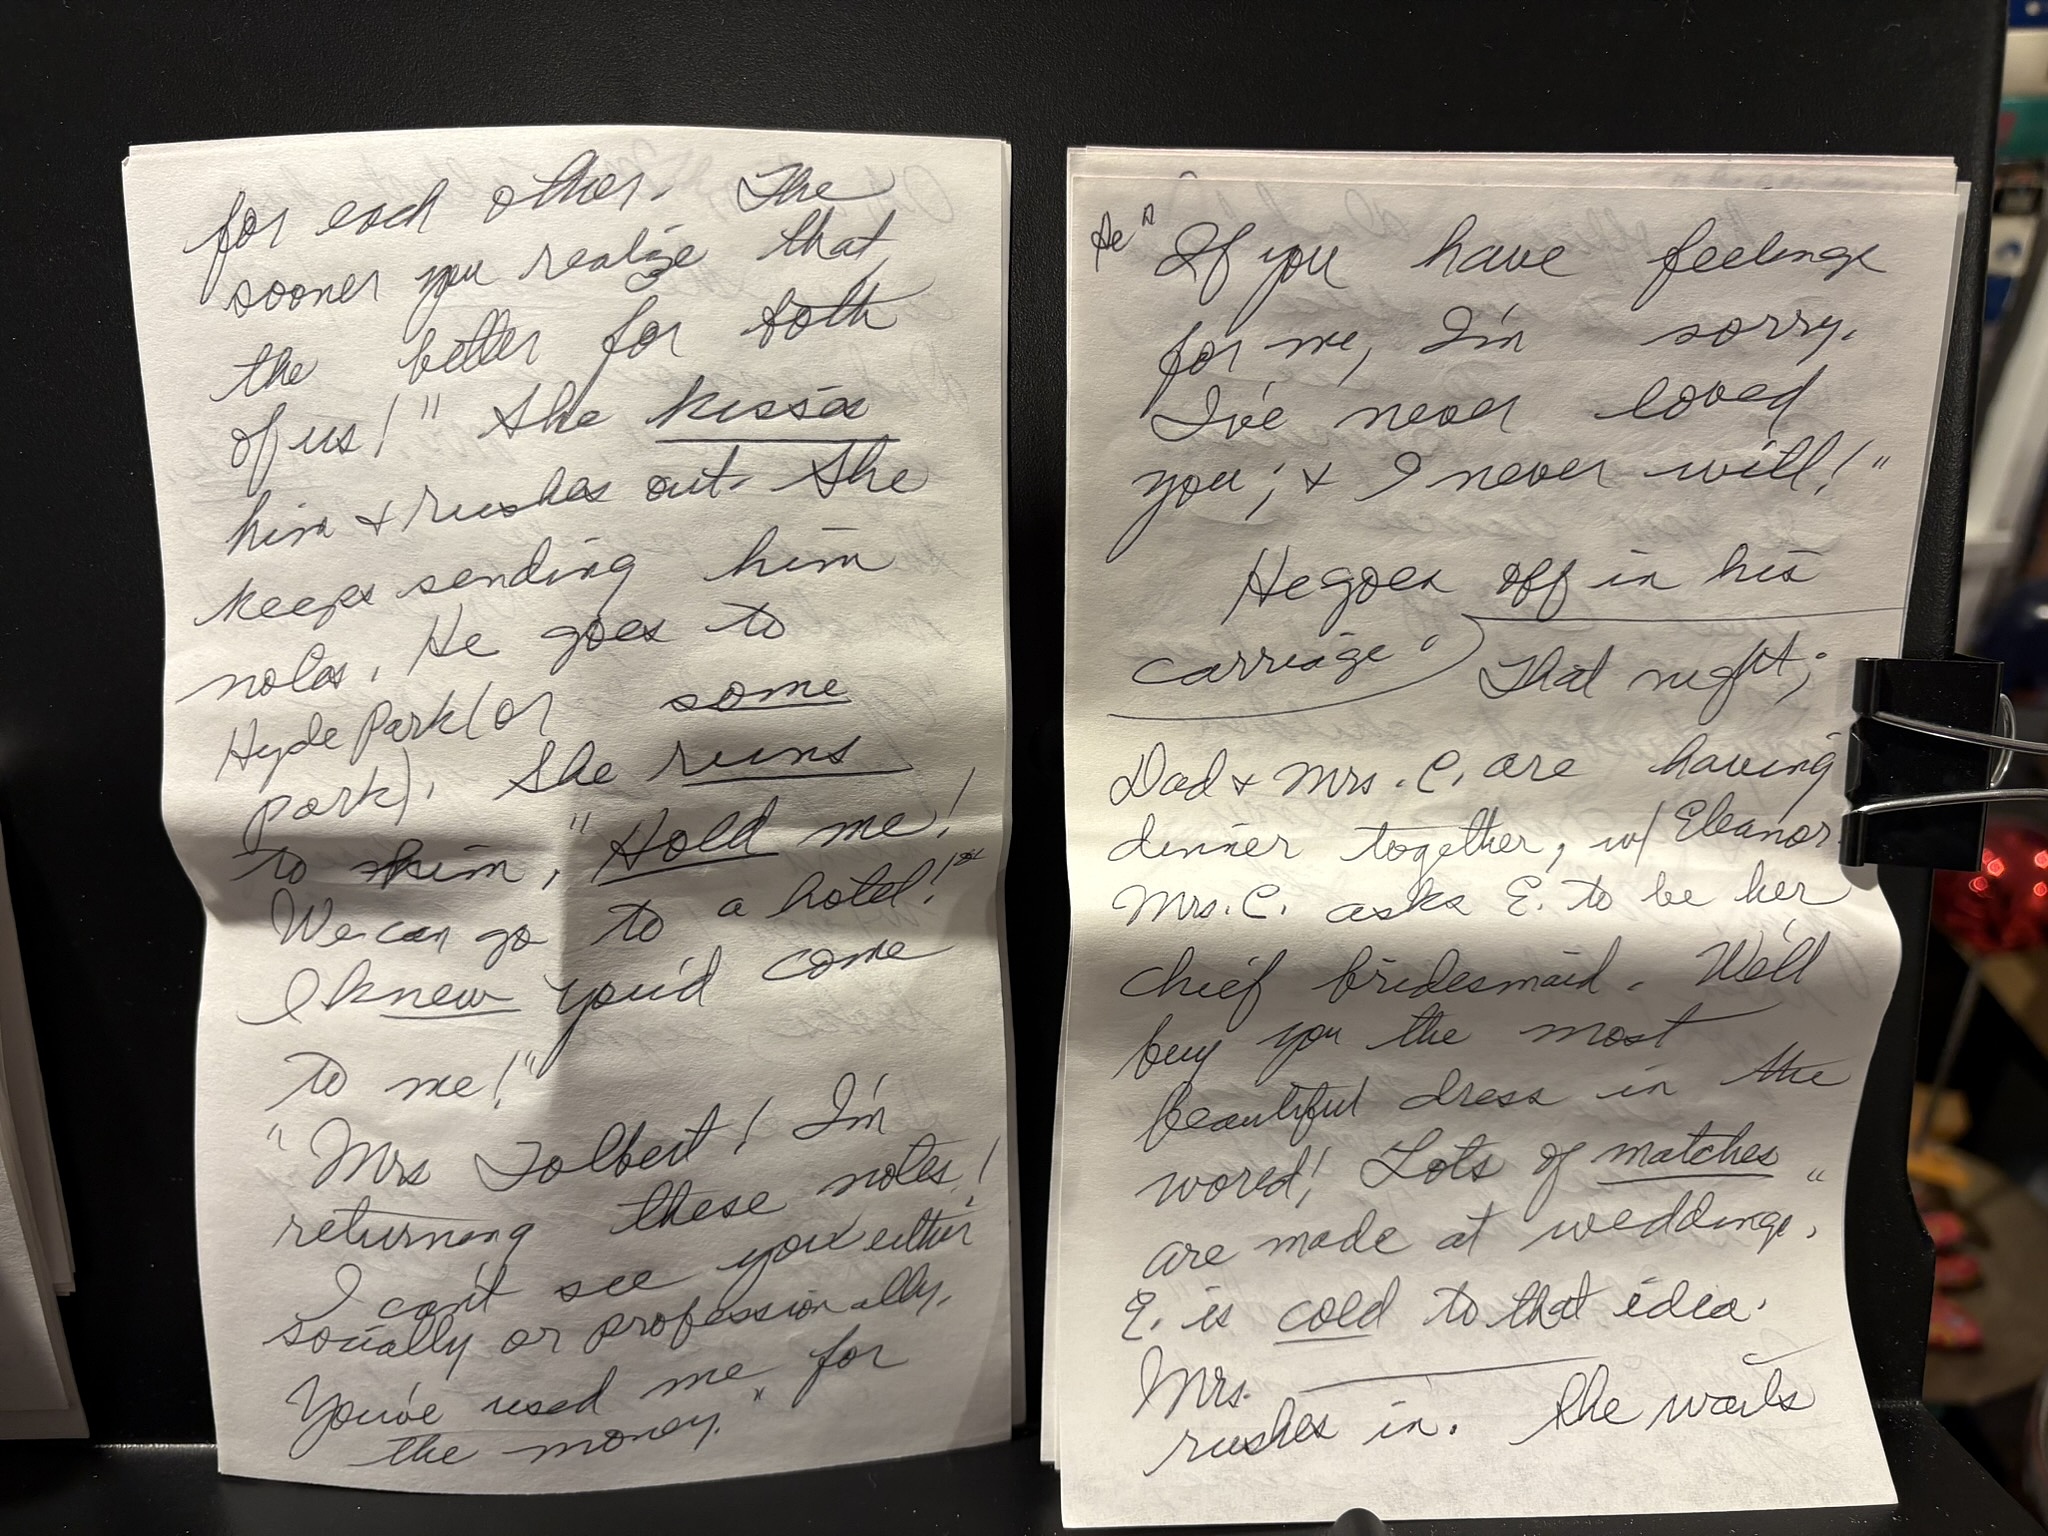 for each other. The
sooner you realize that,
the better for both
of us!" She kisses
him & rushes out. She
keeps sending him
notes. He goes to
Hyde Park (or some
park). She runs
to him, "Hold me!
We can go to a hotel!"
I knew you'd come
to me!"
"Mrs Tolbert! I'm
returning these notes!
I can't see you either
socially or professionally.
You've used me for
the money."
He "If you have feelings
for me, I'm sorry.
I've never loved
you; & I never will!"
He goes off in his
carriage. That night;
Dad & Mrs. C. are having
dinner together, w/ Eleanor.
Mrs. C. asks E. to be her
chief bridesmaid. We'll
buy you the most
beautiful dress in the
world! Lots of matches
are made at weddings."
E. is cold to that idea.
Mrs.
rushes in. She waits